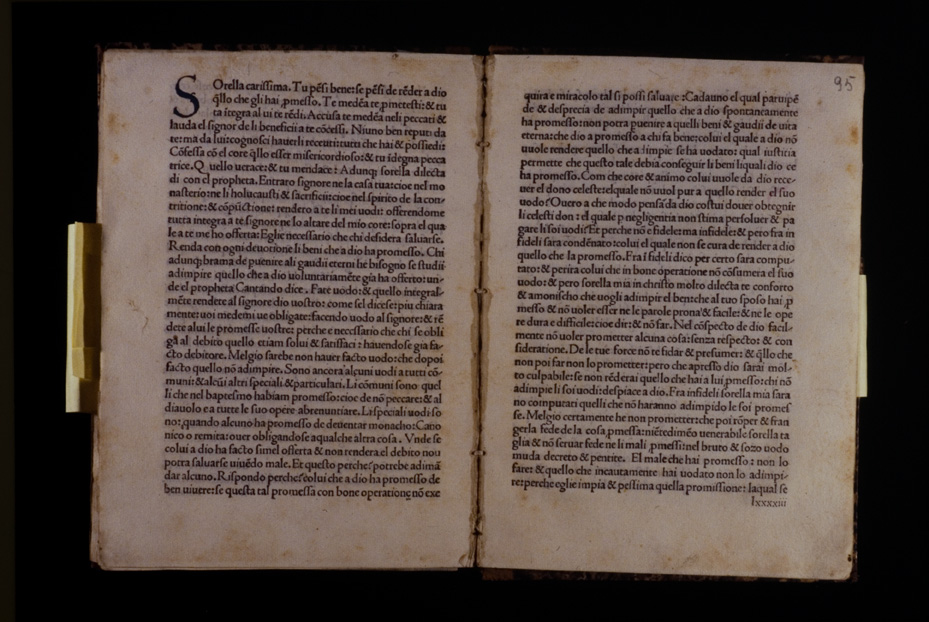 SOrella cariſſima. Tu pẽſi bene: ſe pẽſi de rẽder a dio
q̃llo che gli hai ꝓmeſſo. Te medẽa te ꝓmeteſti: & tu
ta ĩtegra al ui te rẽdi. Accuſa te medẽa neli peccati &
lauda el ſignor de li beneficii a te cõceſſi. Niuno ben reputi da
te: ma da lui: cognoſci hauerli receuti: tuti che hai & poſſiedi:
Cõfeſſa cõ el core q̃llo eſſer miſericordioſo: & tu ſdegna pecca
trice. Quello uerace: & tu mendace: Adunq; ſorella dilecta
di con el propheta. Entraro ſignore ne la caſa tua: cioe nel mo
naſterio: ne li holocauſti & ſacrificii: cioe nel ſpirito de la con
tritione: & cõpũctione: rendero a te li mei uodi: offerendome
tutta integra a te ſignore ne lo altare del mio core: ſopra el qua
le a te me ho offerta: Eglie neceſſario che chi deſidera ſaluarſe.
Renda con ogni deuotione li beni che a dio ha promeſſo. Chi
adunq; brama de puenire ali gaudii eterni he biſogno ſe ſtudii
adimpire quello che a dio uoluntariamẽte gia ha offerto: un
de el propheta Cantando dice. Fate uodo: & quello integral
mẽte rendete al ſignore dio uoſtro: come ſel diceſe: piu chiara
mente: uoi medemi ue obligate: facendo uodo al ſignore: & rẽ
dete a lui le promeſſe uoſtre: perche e neceſſario che chi ſe obli
ga al debito quello etiam ſolui & ſatiſfaci: hauendoſe gia fa
cto debitore. Melgio ſarebe non hauer facto uodo: che dopoi
facto quello nõ adimpire. Sono ancora alcuni uodi a tutti cõ
muni: & alcũi altri ſpeciali & particulari. Li cõmuni ſono quel
li che nel bapteſmo habiam promeſſo: cioe de nõ peccare: & al
diauolo e a tutte le ſuo opere abrenuntiare. Li ſpeciali uodi ſo
no: quando alcuno ha promeſſo de deuentar monacho: Cano
nico o remita: ouer obligandoſe a qualche altra coſa. Vnde ſe
colui a dio ha facto ſimel offerta & non rendera el debito nou
potra ſaluarſe uiuẽdo male. Et queſto perche: potrebe adimã
dar alcuno. Riſpondo perche: colui che a dio ha promeſſo de
ben uiuere: ſe queſta tal promeſſa con bone operatione nõ exe
95
quira e miracolo tal ſi poſſi ſaluare: Cadauno el qual paruipẽ
de & deſprecia de adimpir quello che a dio ſpontaneamente
ha promeſſo: non potra puenire a quelli beni & gaudii de uita
eterna: che dio a promeſſo a chi fa bene: colui el quale a dio nõ
uuole rendere quello che adimpir ſe ha uodato: qual iuſticia
permette che queſto tale debia conſeguir li beni liquali dio ce
ha promeſſo. Com che core & animo colui uuole da dio rece
uer el dono celeſte: elquale nõ uuol pur a quello render el ſuo
uodo? Ouero a che modo penſa da dio coſtui douer obtegnir
li celeſti don: el quale p negligentia non ſtima perſoluer & pa
gare li ſoi uodi? Et perche nõ e fidele: ma infidele: & pero fra in
fideli ſara condẽnato: colui el quale non ſe cura de render a dio
quello che la promeſſo. Fra lĩfideli dico per certo ſara compu
tato: & perira colui che in bone operatione nõ cõſumera el ſuo
uodo: & pero ſorella mia in chriſto molto dilecta te conforto
& amoniſcho che uogli adimpir el ben: che al tuo ſpoſo hai ꝓ
meſſo & nõ uoler eſſer ne le parole prona & facile: & ne le ope
re dura e difficile: cioe dir: & nõ far. Nel cõſpecto de dio facil
mente nõ uoler prometter alcuna coſa: ſenza reſpecto: & con
ſideratione. De le tue force nõ te fidar & preſumer: & q̃llo che
non poi far non lo prometter: pero che apreſſo dio ſarai mol
to culpabile: ſe non rẽderai quello che hai a lui ꝓmeſſo: chi nõ
adimpie li ſoi uodi: deſpiace a dio. Fra infideli ſorella mia ſara
no computati quelli che nõ haranno adimpido le ſoi promeſ
ſe. Melgio certamente he non prometter: che poi rõper & fran
gerla fede de la coſa ꝓmeſſa: niẽtedimẽo uenerabile ſorella ta
glia & nõ ſeruar fede ne li mali ꝓmeſſi: nel bruto & ſozo uodo
muda decreto & pentite. El male che hai promeſſo: non lo
fare: & quello che incautamente hai uodato non lo adimpi
re: perche eglie impia & peſſima quella promiſſione: laqual ſe
lxxxxiii